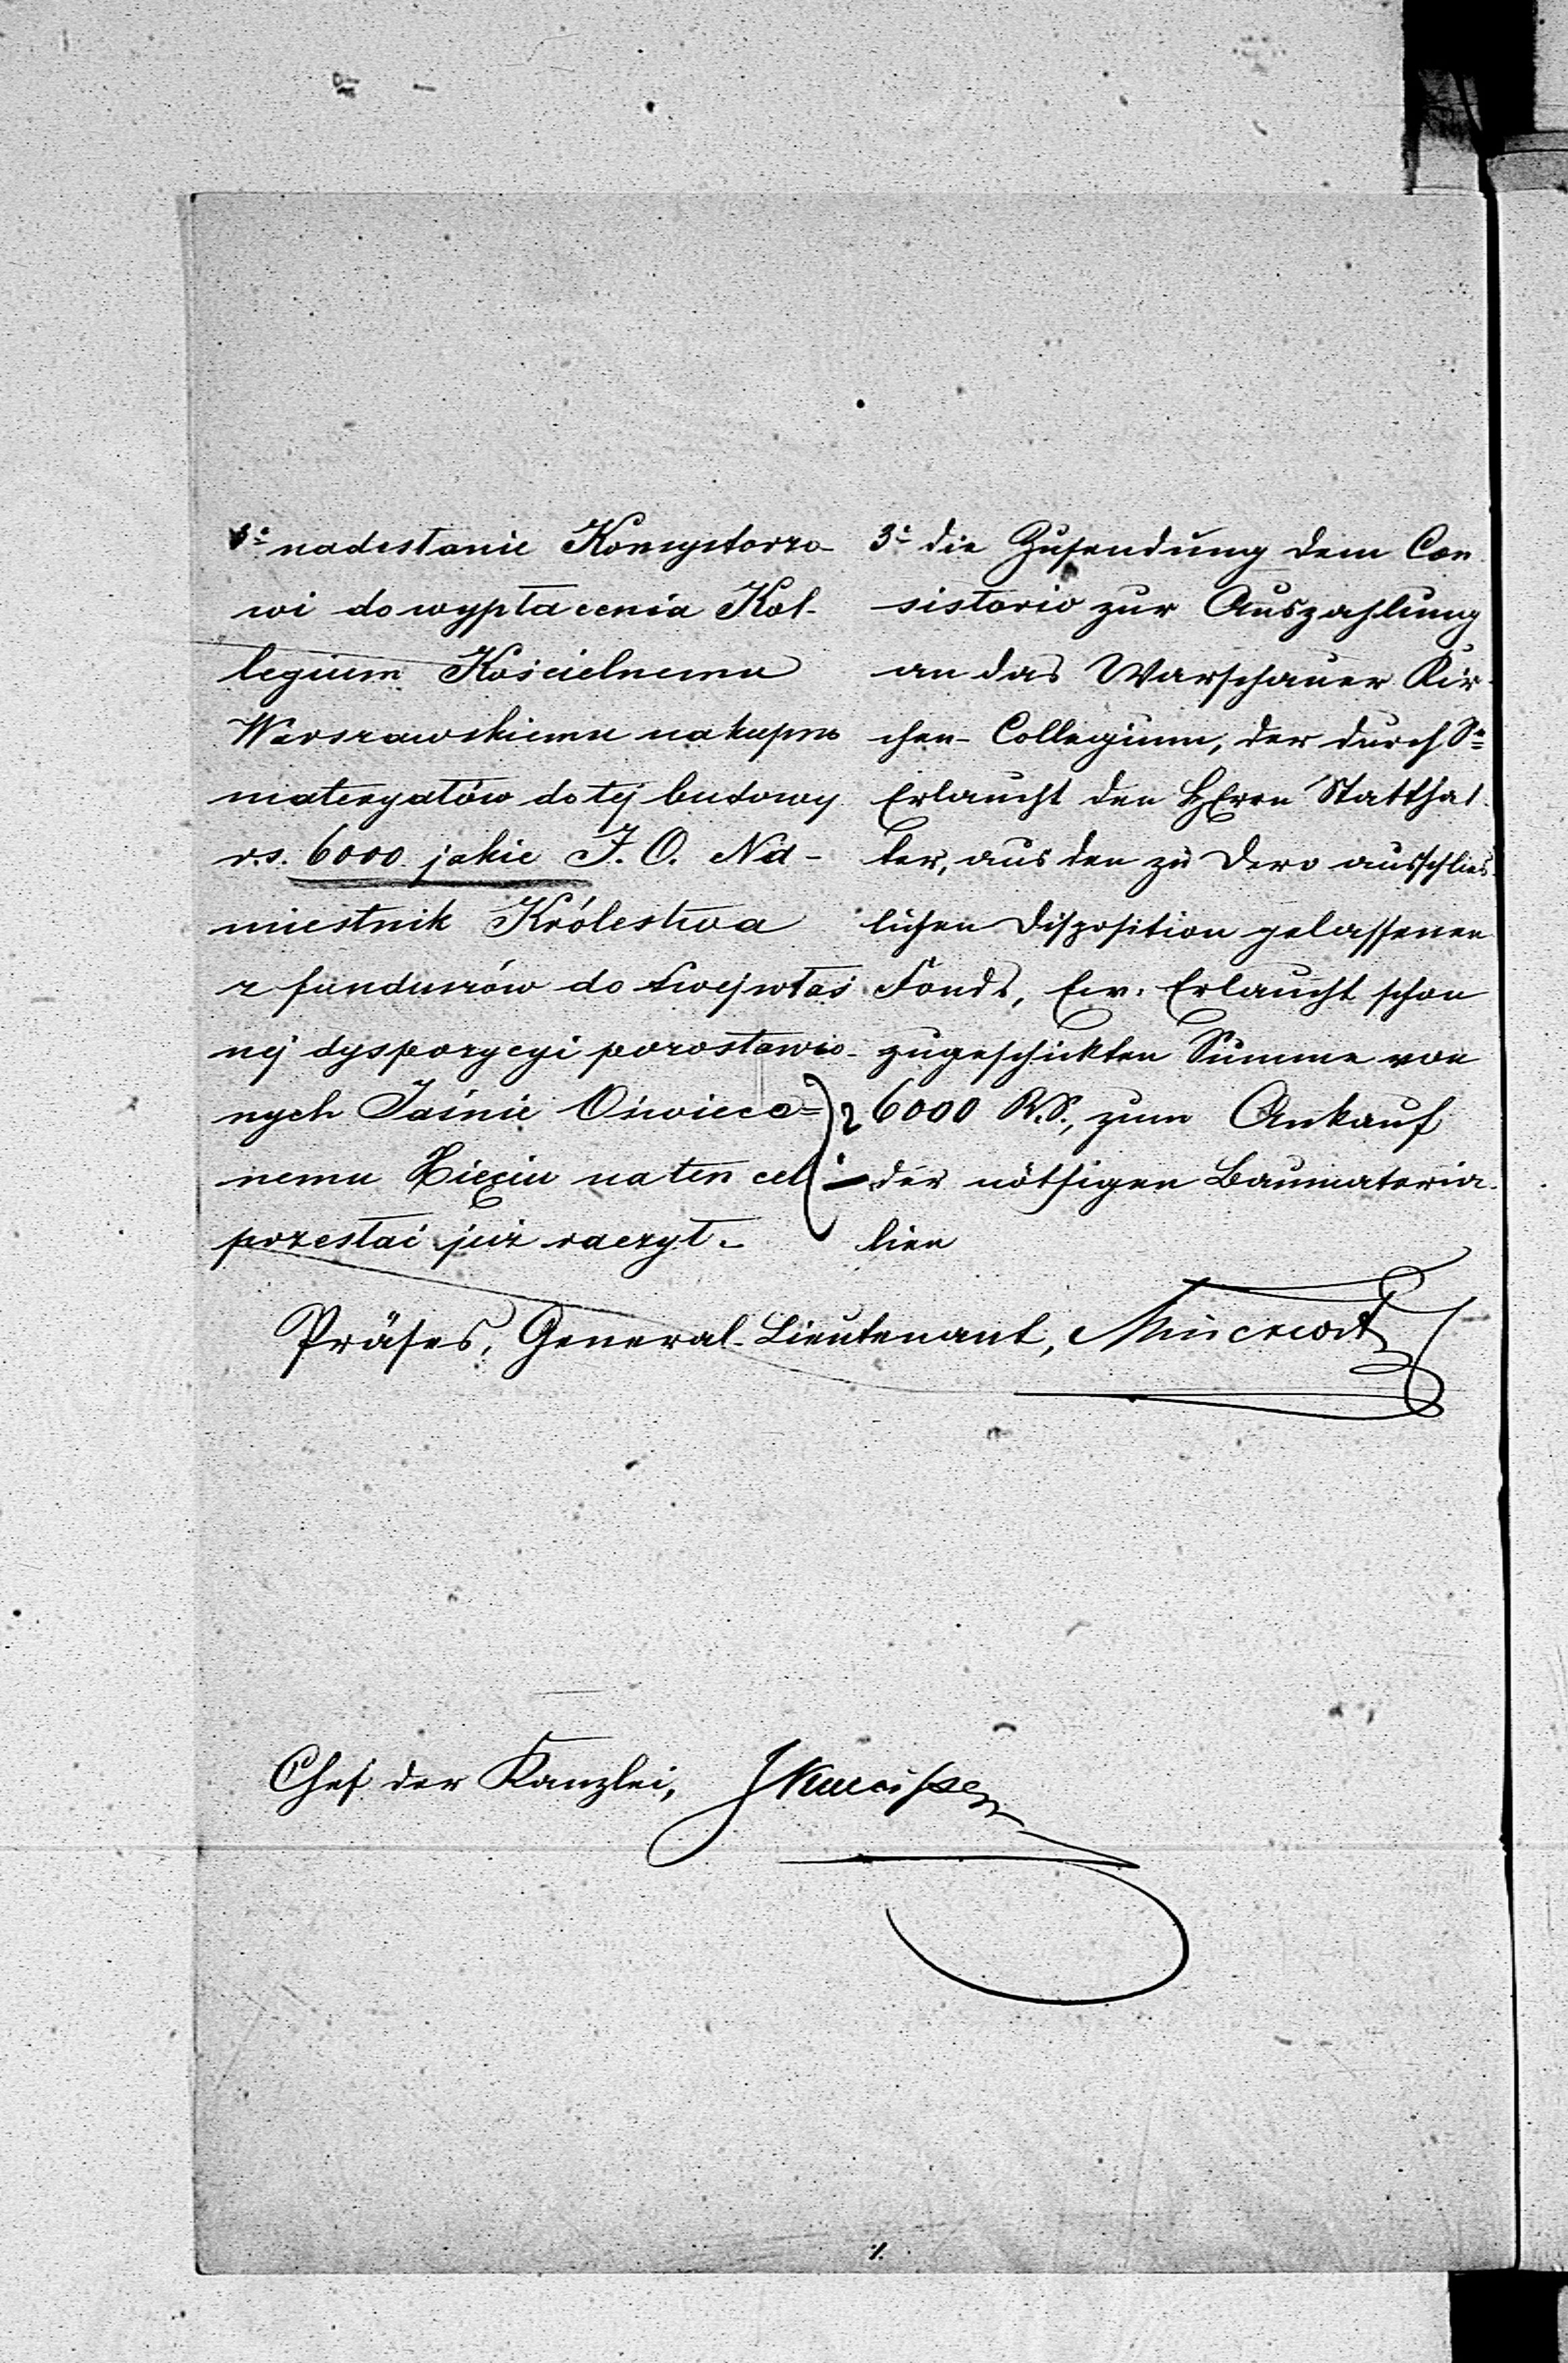 3° nadesłanie Konsystorzo-
wi do wypłacenia Kol-
legium Kościelnemu
Warszawskiemu na kupno
materyałów do tej budowy
r.s. 6000 jakie J. O. Na-
miestnik Królestwa
z funduszów do swej właś
nej dyspozycyi pozostawio-
nych Jaśnie Oświeco=
nemu Xięciu na ten cel
przesłać już raczył.-
3° die Zusendung dem Con
sistorio zur Auszahlung
an das Warschauer Kir-
chen- Collegium, der durch Se
Erlaucht den HErrn Statthal-
ter, aus den zu Dero ausschlies-
lichen Disposition gelassenen
Fonds, Ew. Erlaucht schon
zugeschickten Summe von
6000 R.S., zum Ankauf
der nöthigen Baumateria-
lien
Präses, General-Lieutenant,
Chef der Kanzlei,